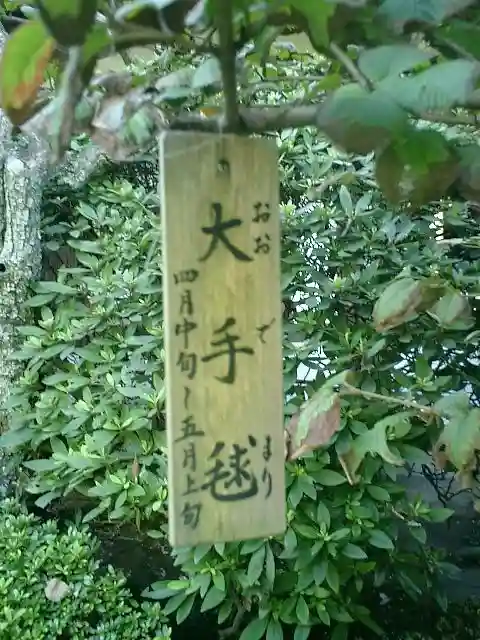 おおでまり
大手毬
四月中旬~五月上旬